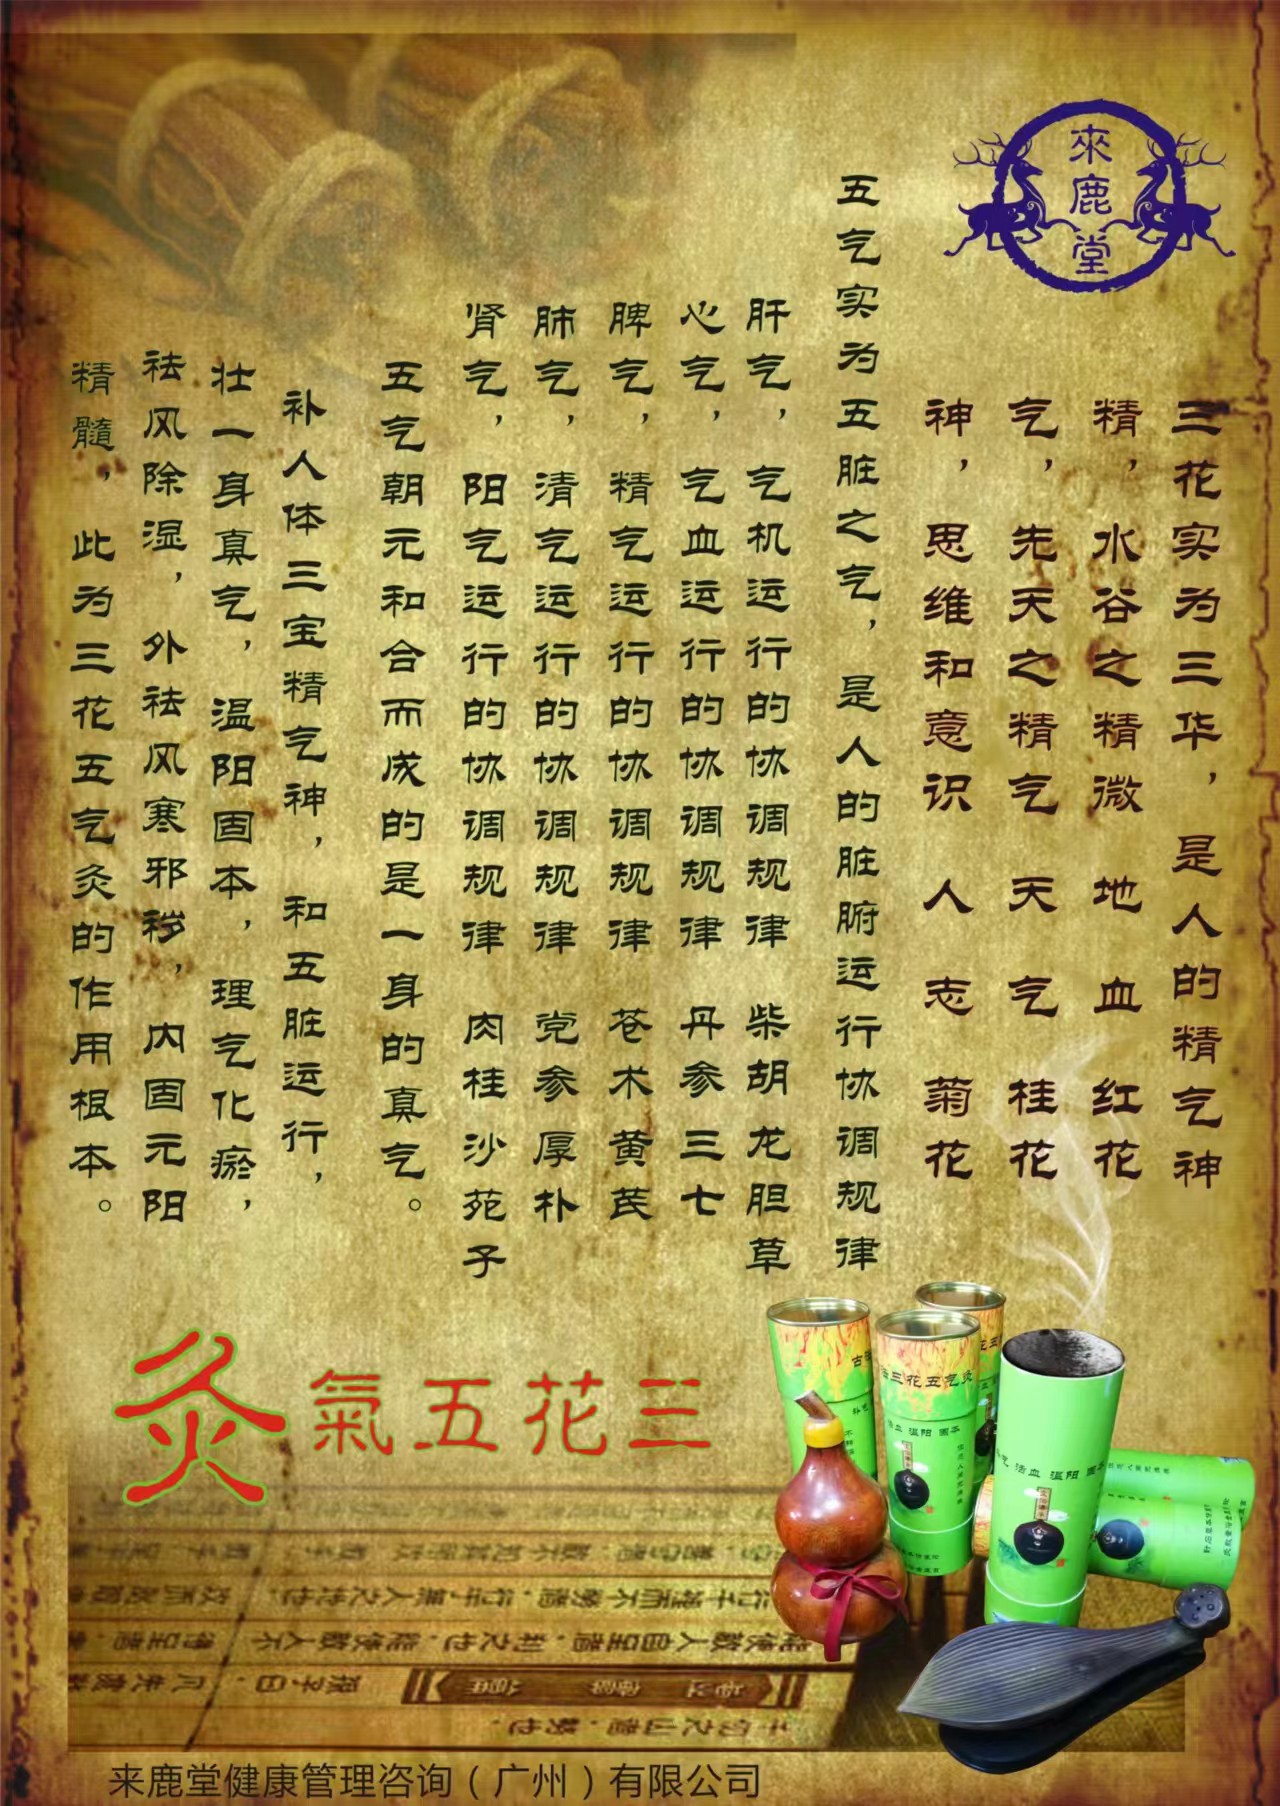 來鹿堂
三花实为三华，是人的精气神
精，水谷之精微 地 血 红花
气，先天之精气 天 气 桂花
神，思维和意识 人 志 菊花
五气实为五脏之气，是人的脏腑运行协调规律
肝气，气机运行的协调规律 柴胡 龙胆草
心气，气血运行的协调规律 丹参 三七
脾气，精气运行的协调规律 苍术 黄芪
肺气，清气运行的协调规律 党参 厚朴
肾气，阳气运行的协调规律 肉桂 沙苑子
五气朝元和合而成的是一身的真气。
补人体三宝精气神，和五脏运行，
壮一身真气，温阳固本，理气化瘀，
祛风除湿，外祛风寒邪秽，内固元阳
精髓，此为三花五气灸的作用根本。
灸氣五花三
三花五气灸
活血 温阳 固本
活血 温阳 固本
来鹿堂健康管理咨询（广州）有限公司